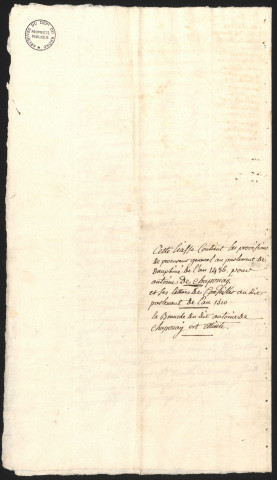 ARCHIVES DU DEPT DU RHONE
PROPRIÉTÉ
PUBLIQUE
Cette liasse Contient les provisions
de procureur general au parlement de
Dauphiné de l'an 1486, pour
antoine de Chaponay,
et ses lettres de Conseiller au dit
parlement de l'an 1510
la Branche du dit antoine de
Chaponay est éteinte.